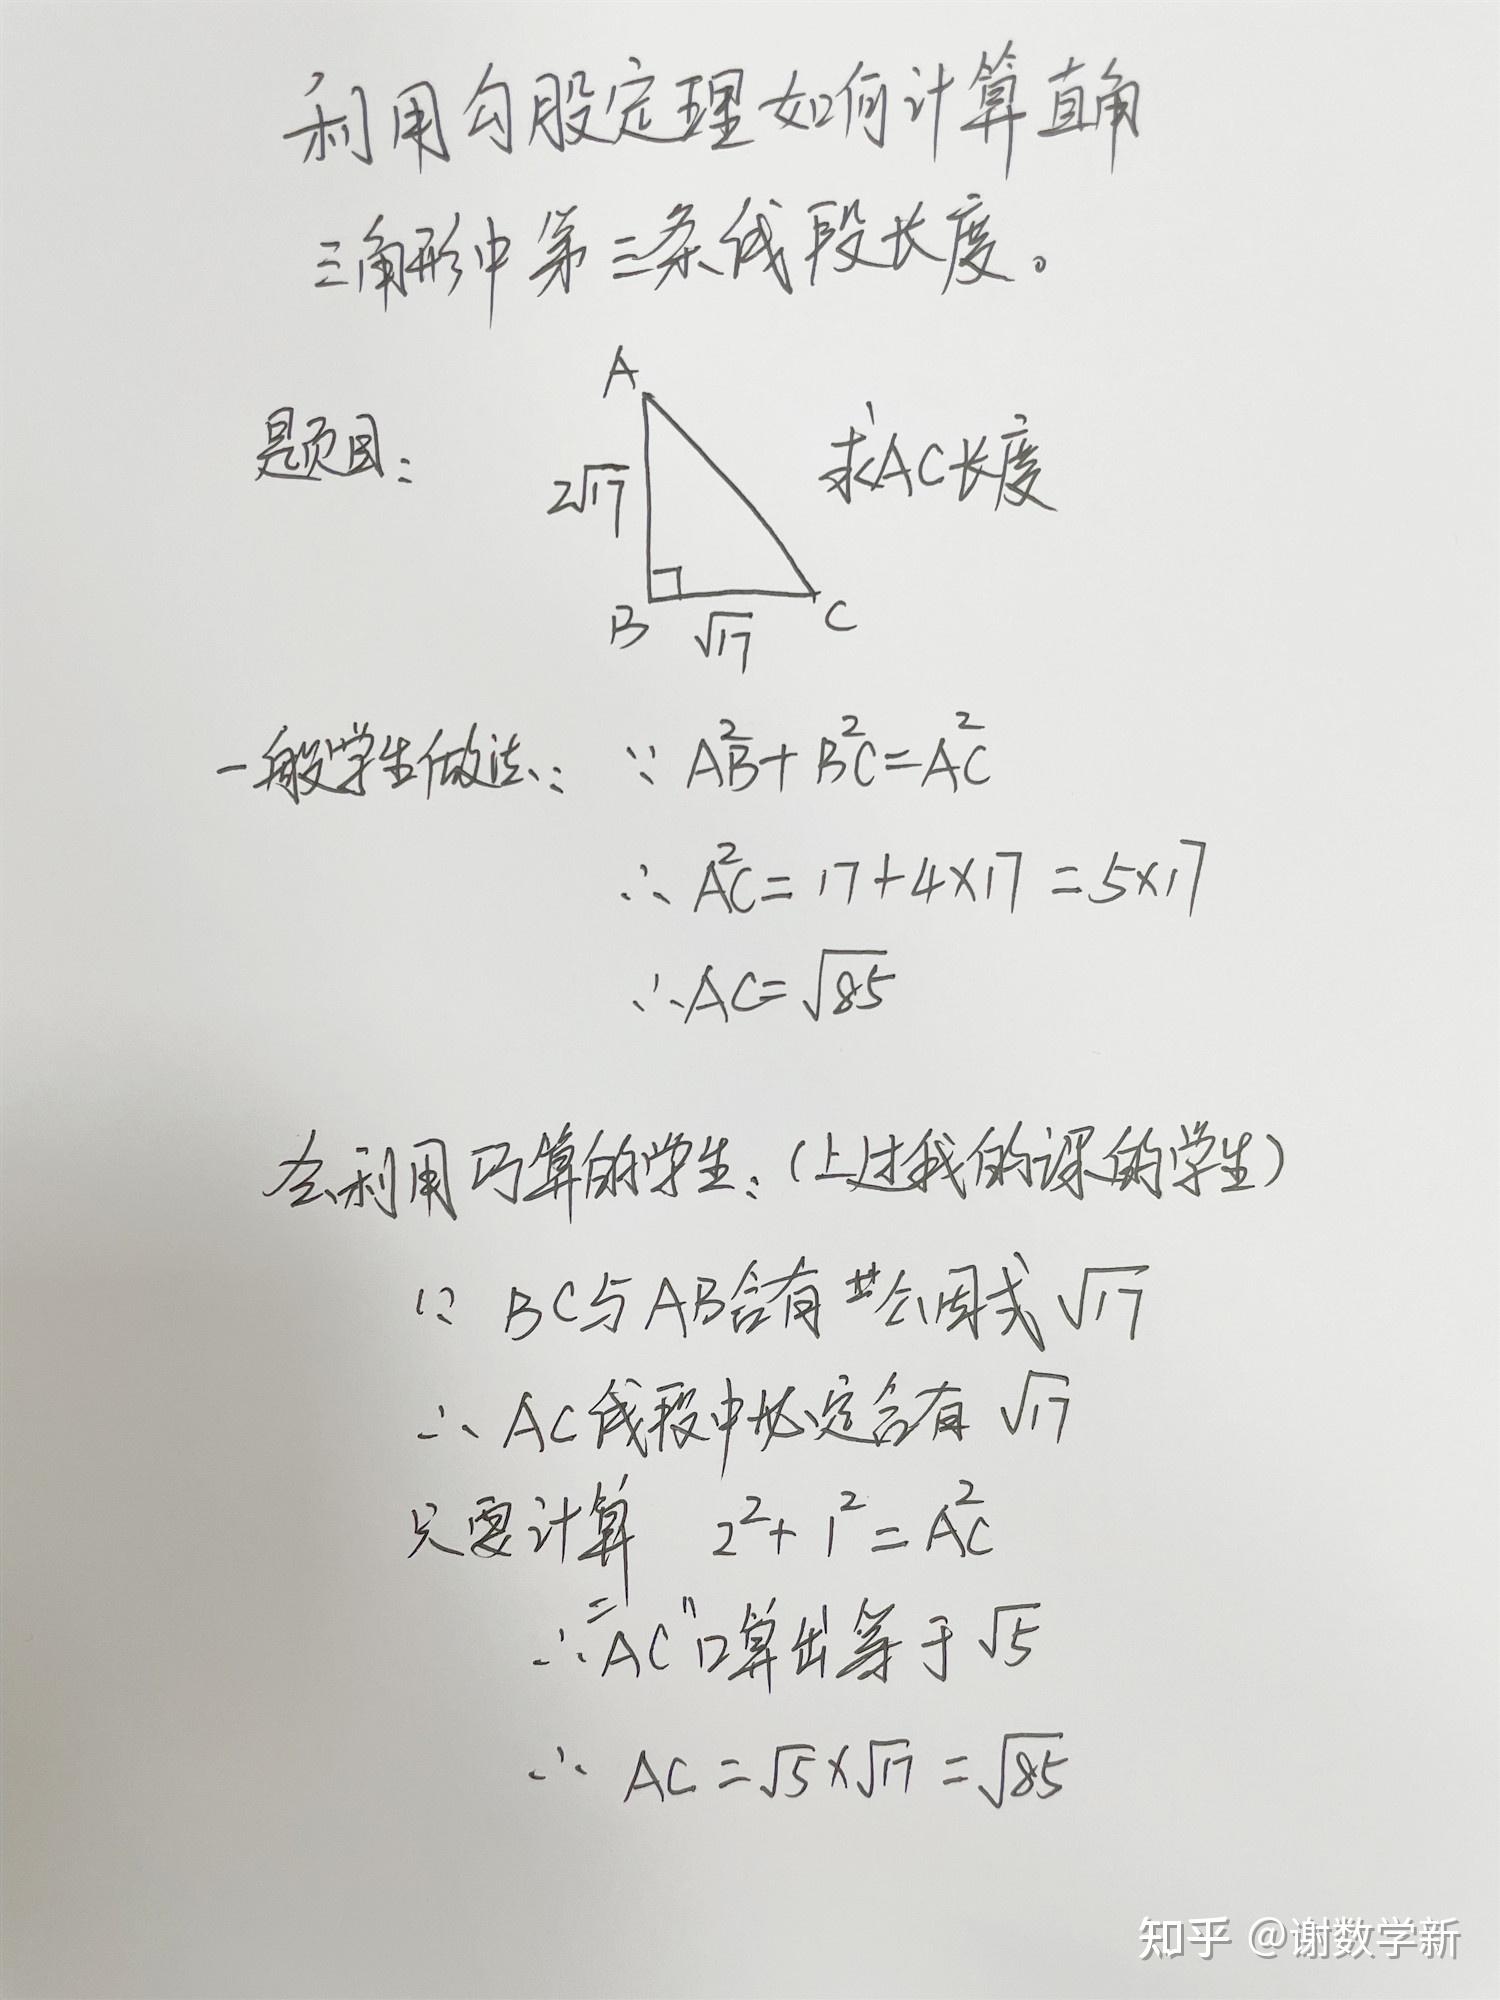 利用勾股定理如何计算直角
三角形中第三条线段长度。
题目:
A
2√17
B
√17
C
求AC长度
一般学生做法: ∵ AB²+BC²=AC²
∴ AC²=17+4×17=5×17
∴AC=√85
会利用巧算的学生:(上过我的课的学生)
∵ BC与AB含有共公因式√17
∴ AC线段中必定含有√17
只要计算 2²+1²=AC²
∴"AC"口算出等于√5
∴ AC=√5×√17=√85
知乎 @谢数学新